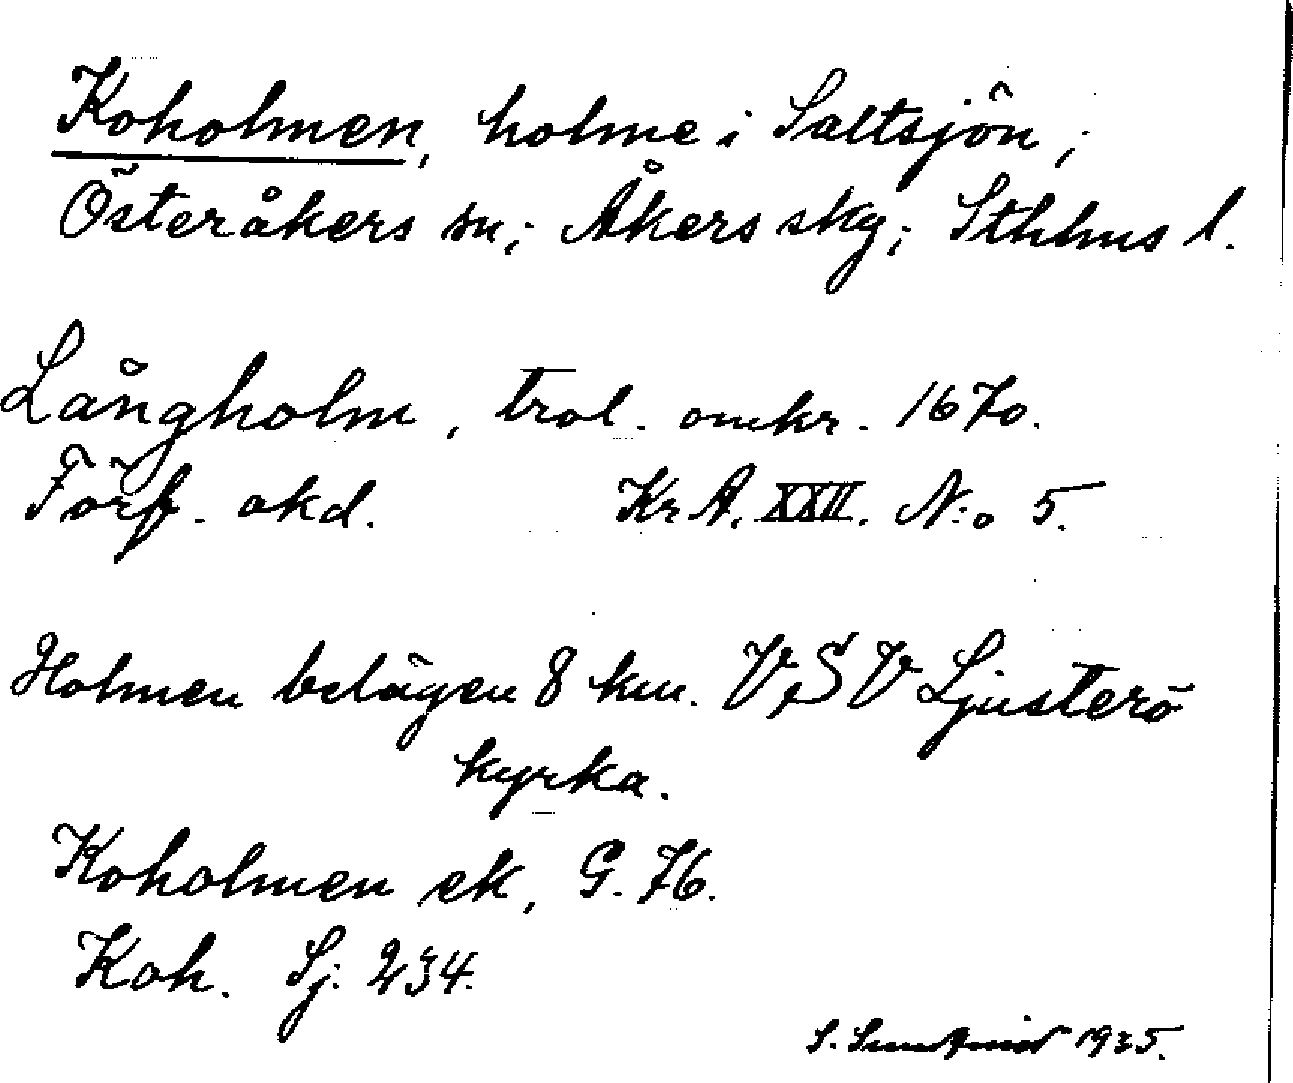 Koholmen, holme i Saltsjön;
Österåkers sn; Åkers skg; Sthlms l.
Långholm, trol. omkr. 1670.
Förf. okd. Kr A. XXII. N:o 5.
Holmen belägen 8 km. V,SV Ljusterö
kyrka.
Koholmen ek, G. 76.
Koh. Sj. 234.
S. 1935.